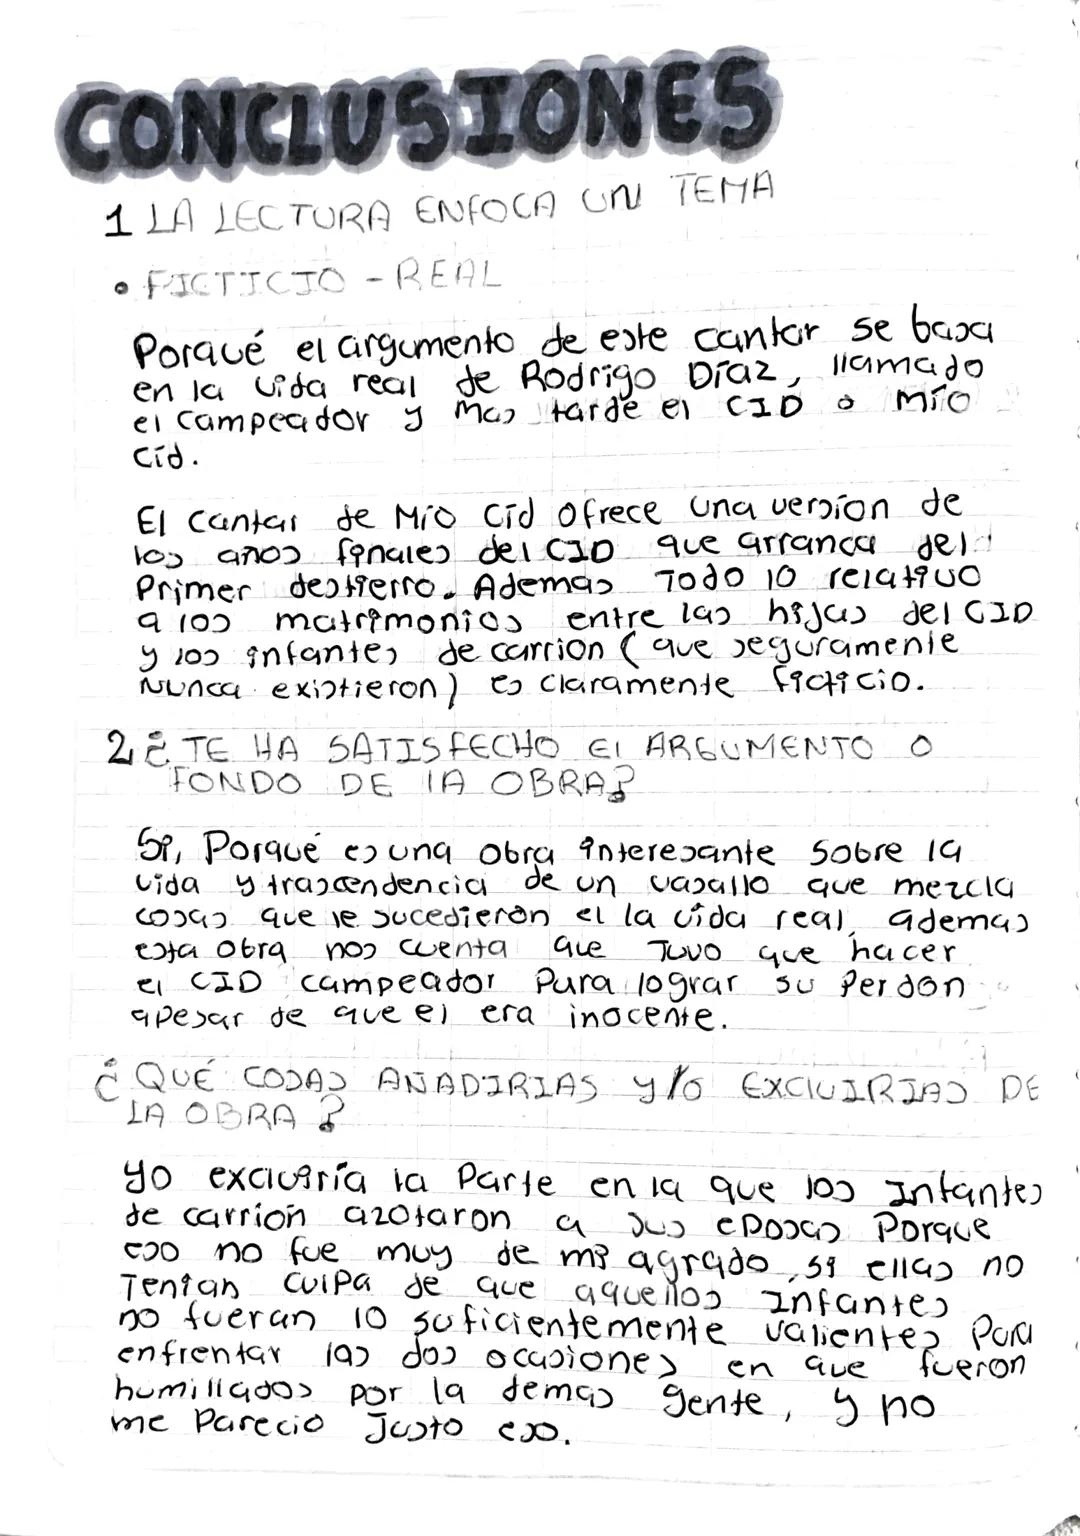 CONCLUSIONES
1 LA LECTURA ENFOCA UN TEMA
• FICTICIO - REAL
Porqué el argumento de este cantar se basa
en la vida real de Rodrigo Díaz, llamado
el campeador y mas tarde el CID o Mío
Cíd.
El cantar de Mío Cíd ofrece una versíon de
los años finales del CID que arranca del
Primer destierro. Ademas Todo lo relativo
a los matrimonios entre las hijas del CID
y los infantes de carrion (que seguramente
Nunca existieron) es claramente ficticio.
2 ¿TE HA SATISFECHO El ARGUMENTO O
FONDO DE lA OBRA?
Si, Porqué es una obra interesante sobre la
vida y trascendencia de un vasallo que mezcla
cosas que le sucedierón el la vída real, ademas
esta obra nos cuenta que Tuvo que hacer
el CID campeador Para lograr su Perdon
apesar de que el era inocente.
¿QUÉ COSAS AÑADIRIAS y/o EXCluIRIAS DE
LA OBRA?
yo excluiría la Parte en la que los Infantes
de carrión azotaron a sus eposas Porque
eso no fue muy de mi agrado, si ellas no
Tenian culpa de que aquellos Infantes
no fueran lo suficientemente valientes Para
enfrentar las dos ocasiones en que fueron
humillados por la demas gente, y no
me Parecio Justo eso.